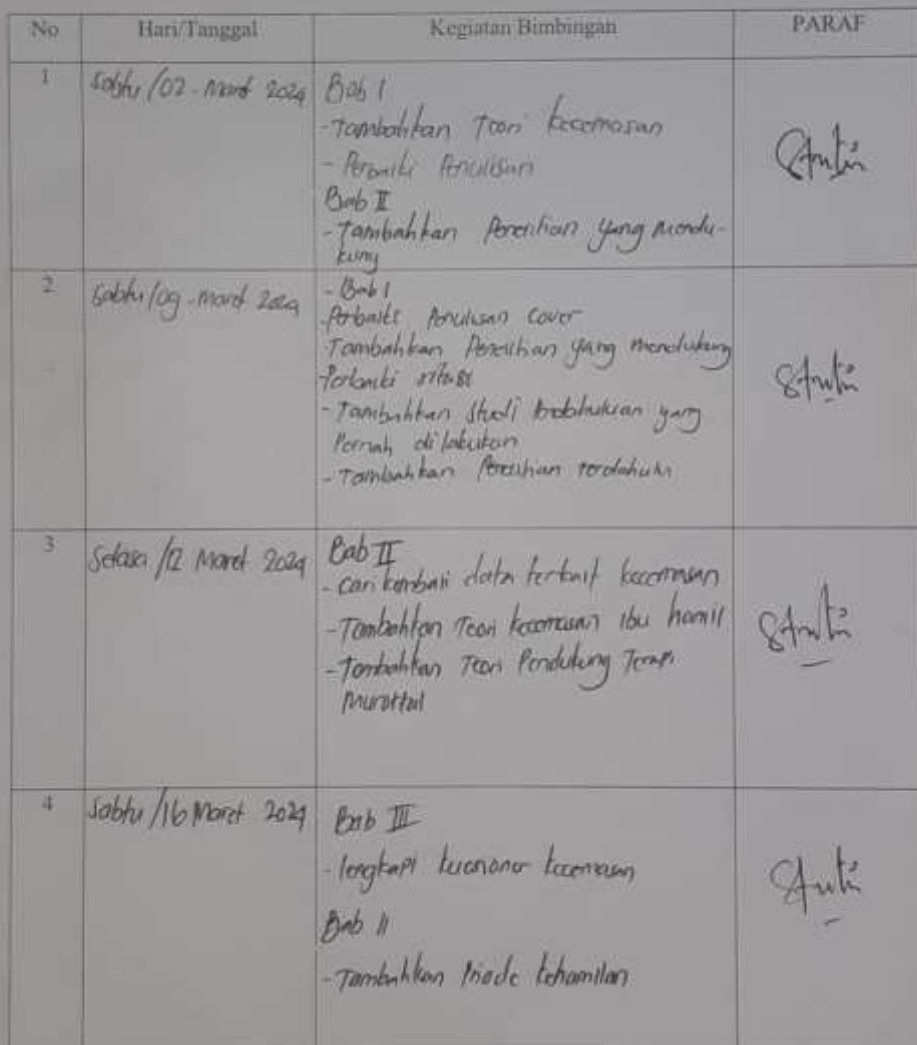 No Hari/Tanggal Kegiatan Bimbingan PARAF
1 Sabtu/02-Maret 2024 Bab I
-Tambahkan Teori kecemasan
- Perbaiki Penulisan
Bab II
-Tambahkan Penelitian yang mendu-
kung
2 Sabtu/09-maret 2024 - Bab I
Perbaiki Penulisan cover
Tambahkan Penelitian yang mendukung
Perbaiki sitasi
-Tambahkan studi yang
Pernah dilakukan
-Tambahkan Penelitian terdahulu
3 Selasa/12 Maret 2024 Bab II
- Cari kembali data terkait kecemasan
-Tambahkan Teori kecemasan ibu hamil
-Tambahkan Teori Pendukung Terapi
Murottal
4 Sabtu/16 Maret 2024 Bab III
- lengkapi kuesioner kecemasan
Bab II
-Tambahkan Priode kehamilan